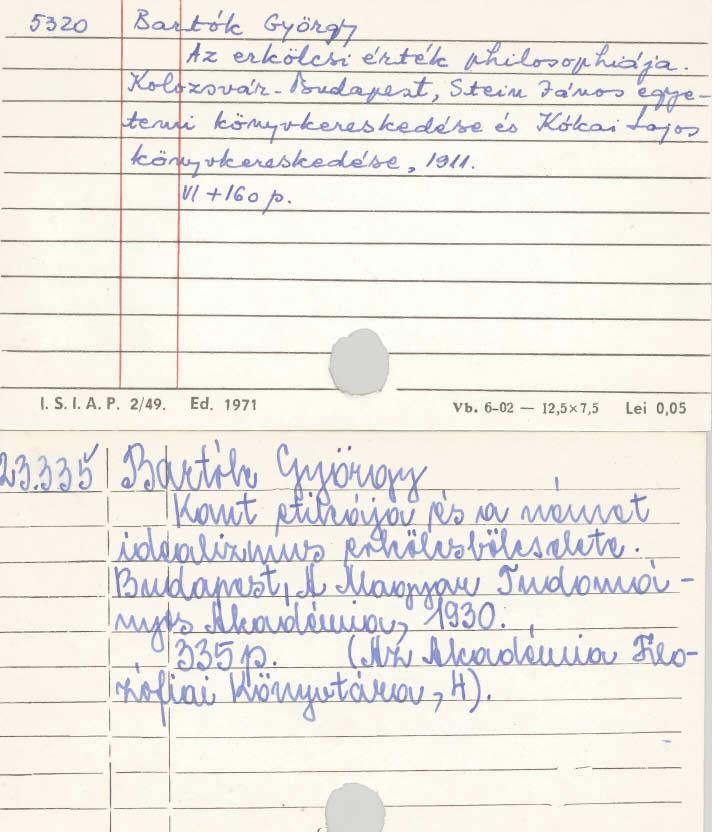 5320 Bartók György
Az erkölcsi érték philosophiája.
Kolozsvár-Budapest, Stein János egye-
temi könyvkereskedése és Kókai Lajos
könyvkereskedése, 1911.
VI + 160 p.
I. S. I. A. P. 2/49. Ed. 1971 Vb. 6-02 — 12,5×7,5 Lei 0,05
23.335 Bartók György
Kant etikája és a német
idealizmus erkölcsbölcselete.
Budapest, A Magyar Tudomá-
nyos Akadémia, 1930.
335 p. (Az Akadémia Filo-
zófiai Könyvtára, 4).